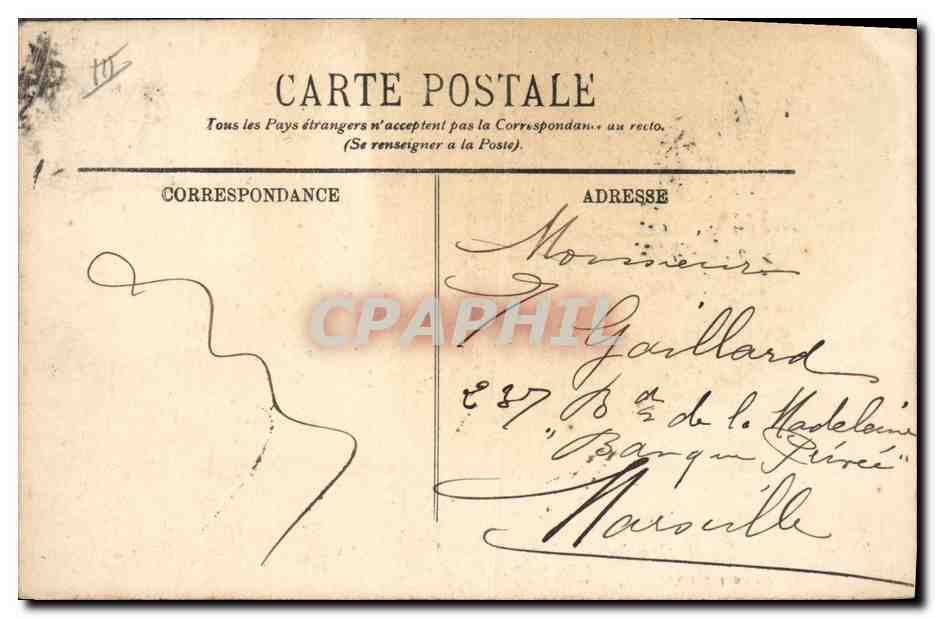 III
CARTE POSTALE
Tous les Pays étrangers n'acceptent pas la Correspondance au recto.
(Se renseigner a la Poste).
CORRESPONDANCE
ADRESSE
Monsieur
Gaillard
237 Bd de la Madelaine
"Banque Privée"
Marseille
CPAPHIL